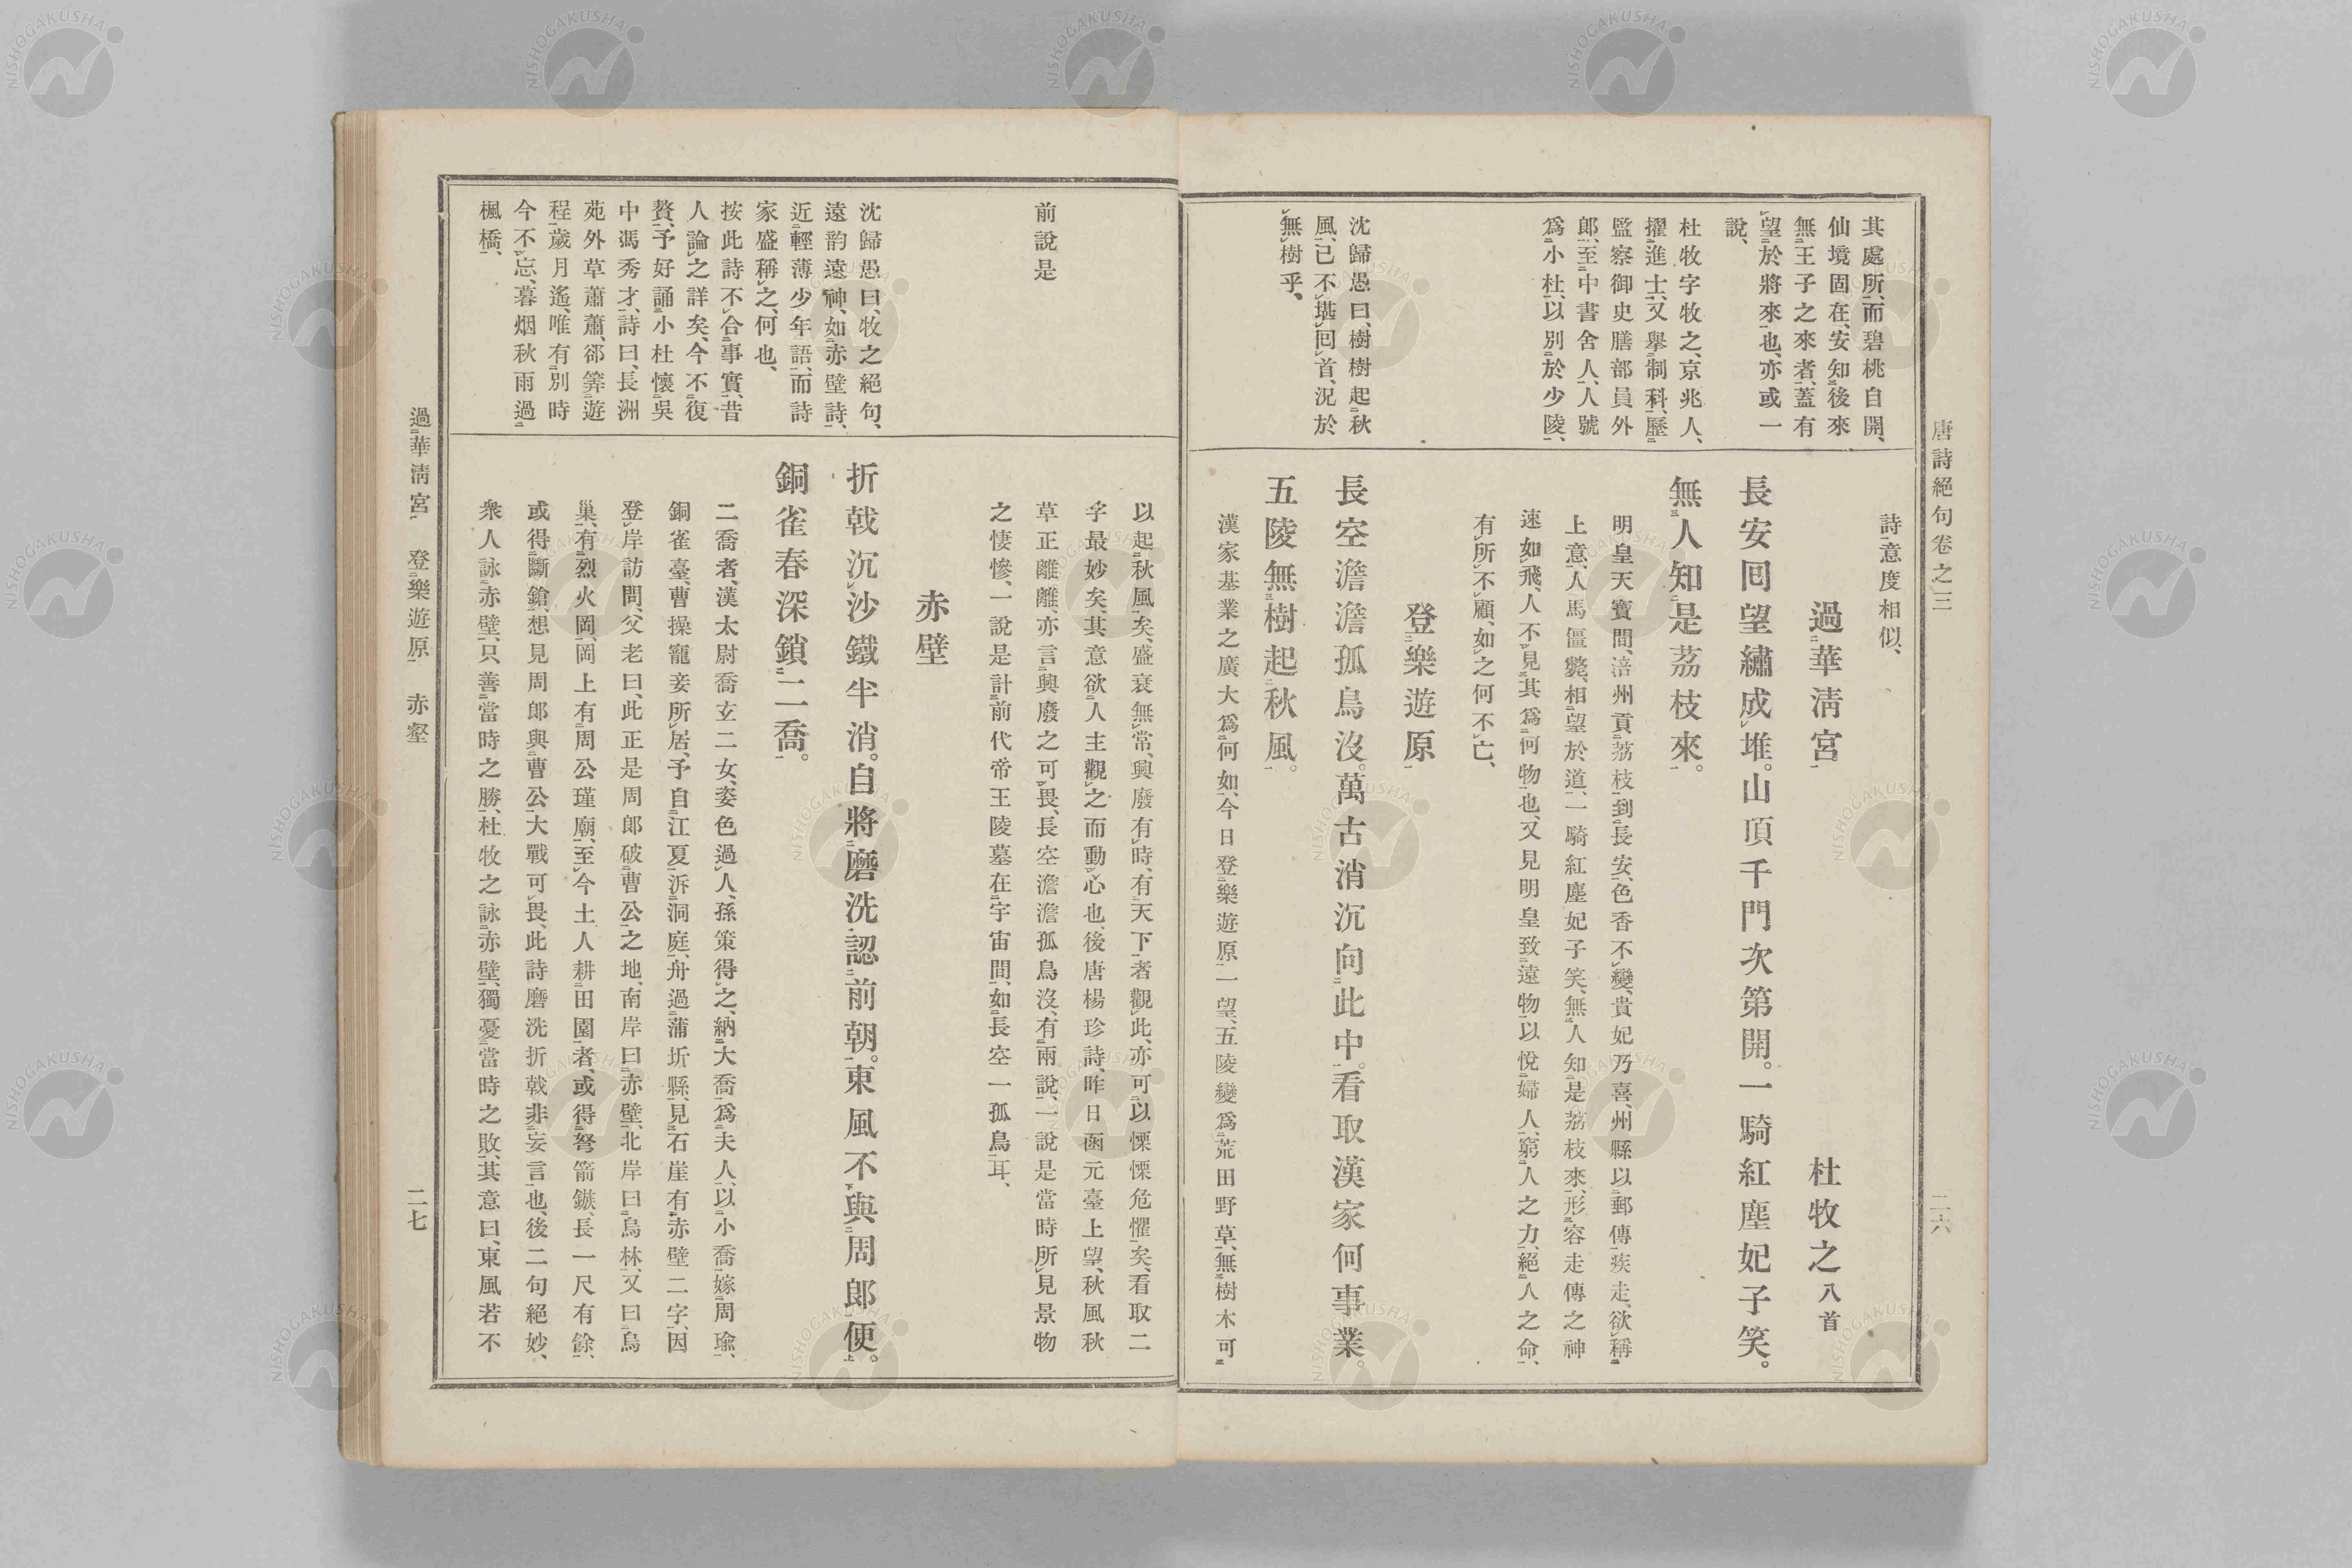 唐詩絕句卷之三
二六
其處所、而碧桃自開、
仙境固在、安知後來
無王子之來者、蓋有
望於將來也、亦或一
說、
杜牧字牧之、京兆人、
擢進士、又擧制科、歷
監察御史膳部員外
郞、至中書舍人、人號
爲小杜、以別於少陵、
沈歸愚曰、樹樹起秋
風、已不堪回首、況於
無樹乎、
詩意度相似、
過華淸宮 杜牧之八首
長安回望繡成堆。山頂千門次第開。一騎紅塵妃子笑。
無人知是荔枝來。
明皇天寶間、涪州貢荔枝、到長安、色香不變、貴妃乃喜、州縣以郵傳疾走、欲稱
上意、人馬僵斃、相望於道、一騎紅塵妃子笑、無人知是荔枝來、形容走傳之神
速如飛、人不見其爲何物也、又見明皇致遠物以悅婦人、窮人之力、絕人之命、
有所不顧、如之何不亡、
登樂遊原
長空澹澹孤鳥沒。萬古消沉向此中。看取漢家何事業。
五陵無樹起秋風。
漢家基業之廣大爲何如、今日登樂遊原一望、五陵變爲荒田野草、無樹木可
前說是
沈歸愚曰、牧之絕句、
遠韵遠神、如赤壁詩、
近輕薄少年語、而詩
家盛稱之、何也、
按此詩不合事實、昔
人論之詳矣、今不復
贅、予好誦小杜懷吳
中馮秀才詩曰、長洲
苑外草蕭蕭、卻筭遊
程歲月遙、唯有別時
今不忘、暮烟秋雨過
楓橋、
以起秋風矣、盛衰無常、興廢有時、有天下者觀此、亦可以慄慄危懼矣、看取二
字最妙矣、其意欲人主觀之而動心也、後唐楊珍詩、昨日函元臺上望、秋風秋
草正離離、亦言興廢之可畏、長空澹澹孤鳥沒、有兩說、一說是當時所見景物
之悽慘、一說是計前代帝王陵墓在宇宙間、如長空一孤鳥耳、
赤壁
折戟沉沙鐵半消。自將磨洗認前朝。東風不與周郞便。
銅雀春深鎖二喬。
二喬者、漢太尉喬玄二女、姿色過人、孫策得之、納大喬爲夫人、以小喬嫁周瑜、
銅雀臺、曹操寵妾所居、予自江夏泝洞庭、舟過蒲圻縣、見石崖有赤壁二字、因
登岸訪問、父老曰、此正是周郞破曹公之地、南岸曰赤壁、北岸曰烏林、又曰烏
巢、有烈火岡、岡上有周公瑾廟、至今土人耕田園者、或得弩箭鏃、長一尺有餘、
或得斷鎗、想見周郞與曹公大戰可畏、此詩磨洗折戟、非妄言也、後二句絕妙、
衆人詠赤壁、只善當時之勝、杜牧之詠赤壁、獨憂當時之敗、其意曰、東風若不
過華淸宮 登樂遊原 赤壑
二七